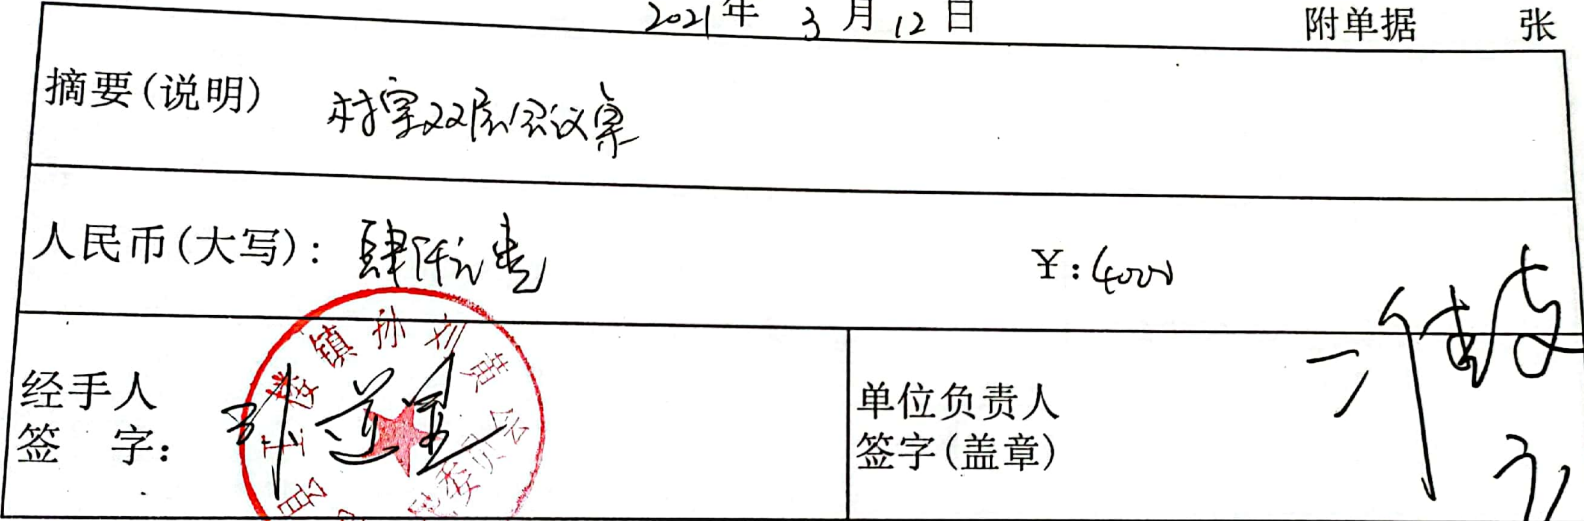 2021年 3月12日 附单据 张
摘要(说明) 村室双层会议桌
人民币(大写): 肆仟元
¥:4000
经手人
签 字:
单位负责人
签字(盖章)
镇孙刘黄
委员会